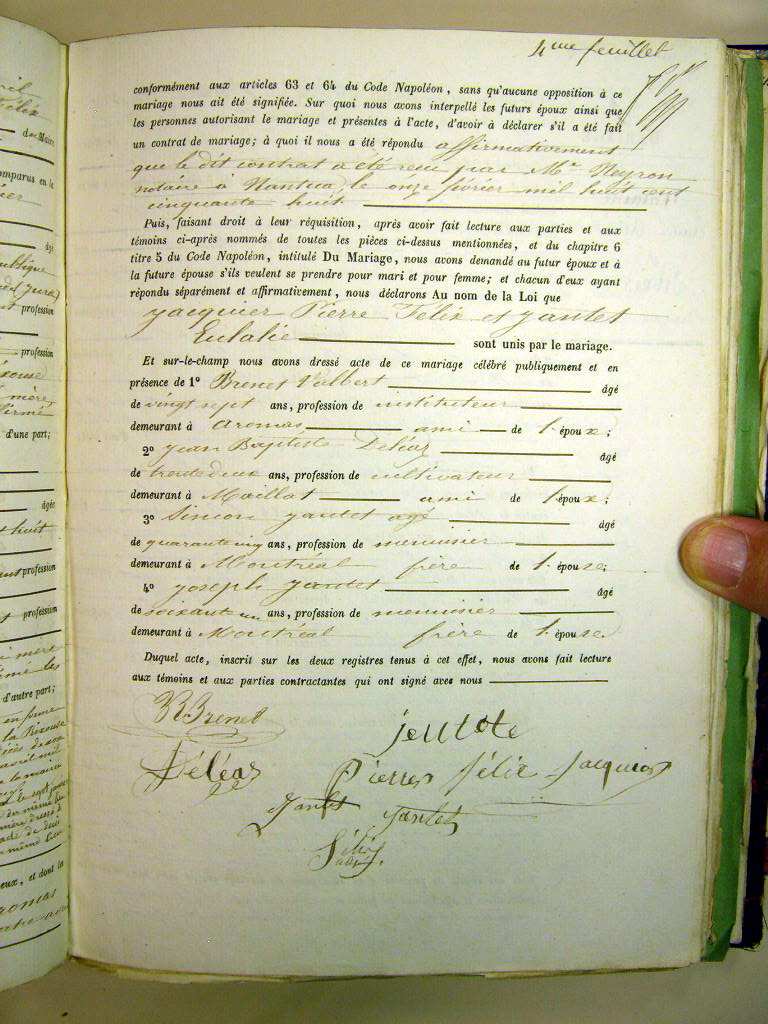 4me feuillet
conformément aux articles 63 et 64 du Code Napoléon, sans qu'aucune opposition à ce
mariage nous ait été signifiée. Sur quoi nous avons interpellé les futurs époux ainsi que
les personnes autorisant le mariage et présentes à l'acte, d'avoir à déclarer s'il a été fait
un contrat de mariage; à quoi il nous a été répondu affirmativement
que le dit contrat a été recu par Me Neyron
notaire à Nantua, le onze février mil huit cent
cinquante huit
Puis, faisant droit à leur réquisition, après avoir fait lecture aux parties et aux
témoins ci-après nommés de toutes les pièces ci-dessus mentionnées, et du chapitre 6
titre 5 du Code Napoléon, intitulé Du Mariage, nous avons demandé au futur époux et à
la future épouse s'ils veulent se prendre pour mari et pour femme; et chacun d'eux ayant
répondu séparément et affirmativement, nous déclarons Au nom de la Loi que
Jacquier Pierre Felix et Jantet
Eulalie sont unis par le mariage.
Et sur-le-champ nous avons dressé acte de ce mariage célébré publiquement et en
présence de 1° Brenet Valbert âgé
de vingt sept ans, profession de instituteur
demeurant à Aromas ami de l'époux;
2° Jean Baptiste Déléaz âgé
de trente deux ans, profession de cultivateur
demeurant à Maillat ami de l'époux;
3° Simon Jantet agé âgé
de quarante cinq ans, profession de menuisier
demeurant à Montréal frère de l'épouse;
4° Joseph Jantet âgé
de soixante un ans, profession de menuisier
demeurant à Montréal frère de l'épouse.
Duquel acte, inscrit sur les deux registres tenus à cet effet, nous avons fait lecture
aux témoins et aux parties contractantes qui ont signé avec nous
Brenet
Déléaz
Pierre félix Jacquier
Jantet Jantet